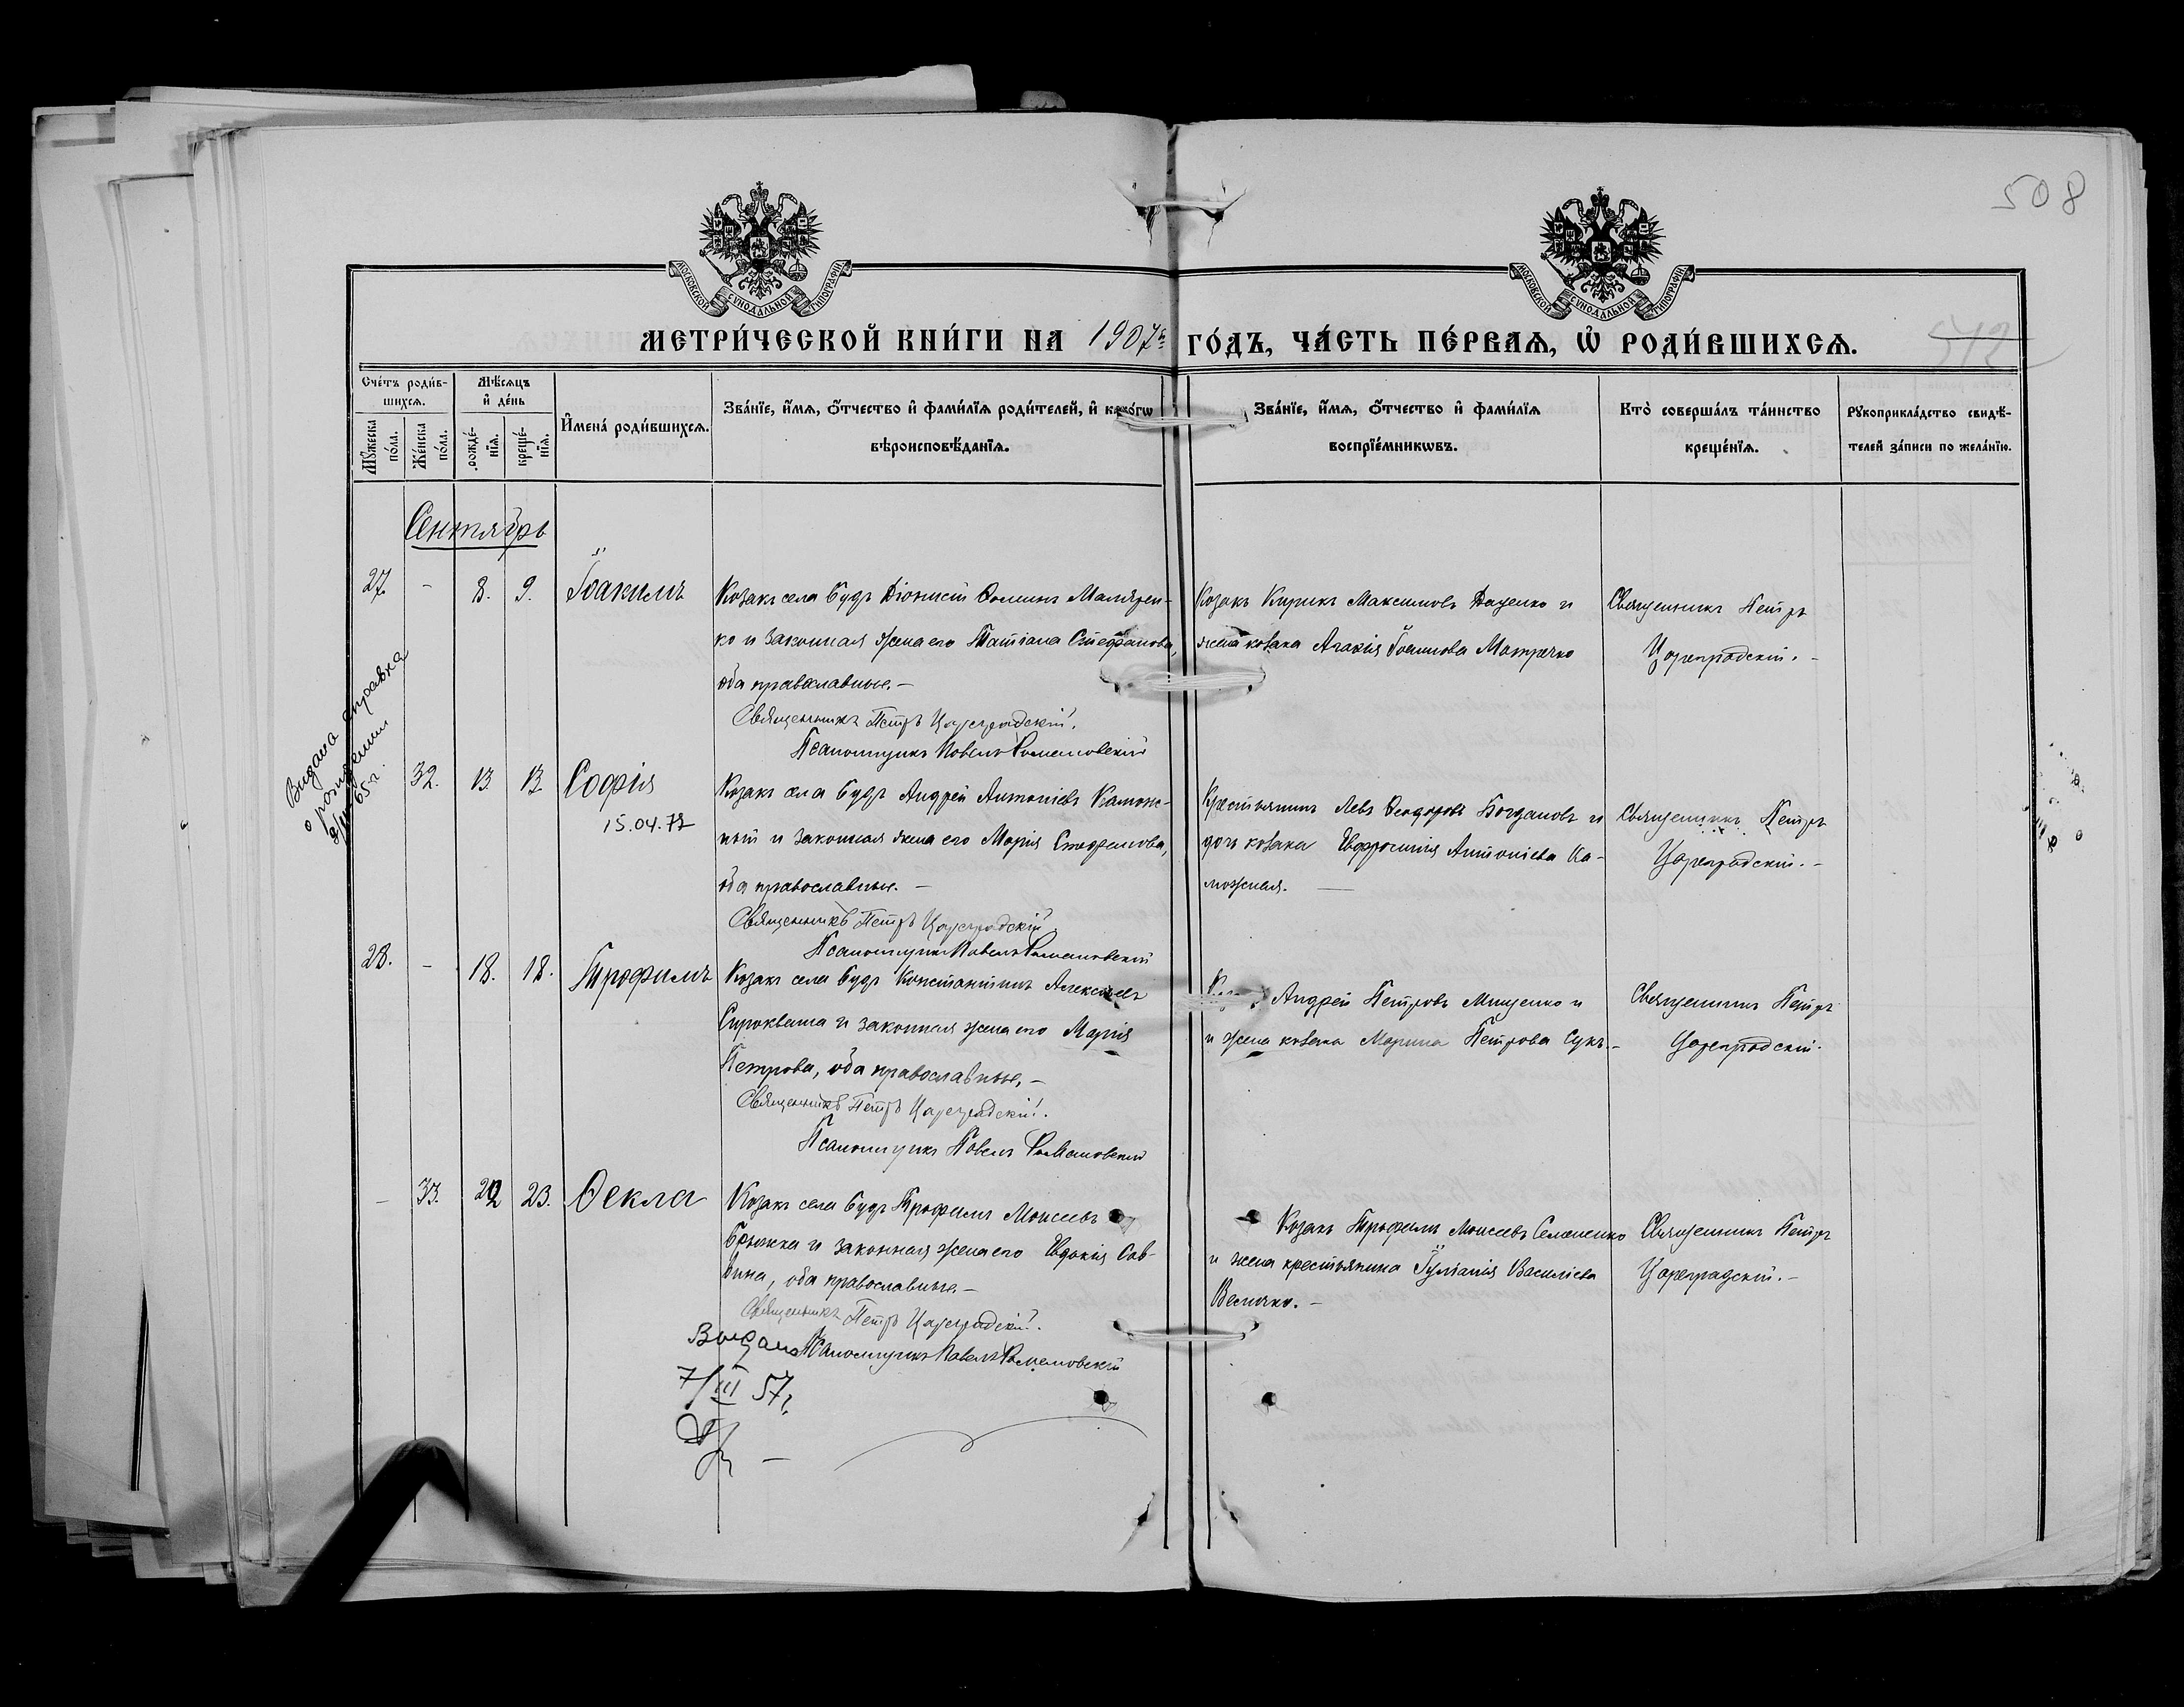 508
МОСКОВСКОЙ СУНОДАЛЬНОЙ ТИПОГРАФІИ
МОСКОВСКОЙ СУНОДАЛЬНОЙ ТИПОГРАФІИ
МЕТРИ́ЧЕСКОЙ КНИ́ГИ НА 1907й ГО́ДЪ, ЧА́СТЬ ПЕ́РВАѦ, Ѡ҆ РОДИ́ВШИХСѦ.
Сче́тъ роди́в-
шихсѧ.
Мꙋ́жеска
по́ла.
Же́нска
по́ла.
Мѣ́сѧцъ
и҆ де́нь
рожде́-
нїѧ.
креще́-
нїѧ.
И҆мена̀ роди́вшихсѧ.
Зва́нїе, и҆́мѧ, ѻ҆́тчество и҆ фами́лїѧ роди́телей, и҆ како́гѡ
вѣроисповѣ́данїѧ.
Зва́нїе, и҆́мѧ, ѻ҆́тчество и҆ фами́лїѧ
воспрїе́мникѡвъ.
Кто̀ соверша́лъ та́инство
креще́нїѧ.
Рꙋкоприкла́дство свидѣ́-
телей за́писи по жела́нїю.
Сентябрь
27. - 8. 9. Іоакимъ
Козакъ села Будъ Діонисій Ѳоминъ Малярен-
ко и законная жена его Татіана Стефанова,
оба православные.-
Священникъ Петръ Цареградскій.
Псаломщикъ Павелъ Романовскій
Козакъ Кирикъ Максимовъ Даценко и
жена козака Агаѳія Іоаннова Матречко
Священникъ Петръ
Цареградскій.-
Видана справка
о рождении
65 г.
32. 13. 13. Софія
15.04.77
Козакъ села Будъ Андрей Антоніевъ Камож-
ный и законная жена его Марія Стефанова,
оба православные.-
Священникъ Петръ Цареградскій
Псаломщикъ Павелъ Романовскій
Крестьянинъ Левъ Ѳеодоровъ Богдановъ и
дочь козака Евфросинія Антоніева Ка-
можная.-
Священникъ Петръ
Цареградскій.-
28. - 18. 18. Трофимъ
Козакъ села Будъ Константинъ Алексіевъ
Сирокваша и законная жена его Марія
Петрова, оба православные,-
Священникъ Петръ Цареградскій.
Псаломщикъ Павелъ Романовскій
Андрей Петровъ Мищенко и
и жена козака Марина Петрова Сукъ.-
Священникъ Петръ
Цареградскій.
- 33. 22 23. Ѳекла
Козакъ села Будъ Трофимъ Моисеевъ
Брюжка и законная жена его Евдокія Сав-
вина, оба православные.-
Священникъ Петръ Цареградскій.
Псаломщикъ Павелъ Романовскій
Козакъ Трофимъ Моисеевъ Семененко
и жена крестьянина Іуліанія Василіева
Величко.-
Священникъ Петръ
Цареградскій.-
Выдано
7/III 57г